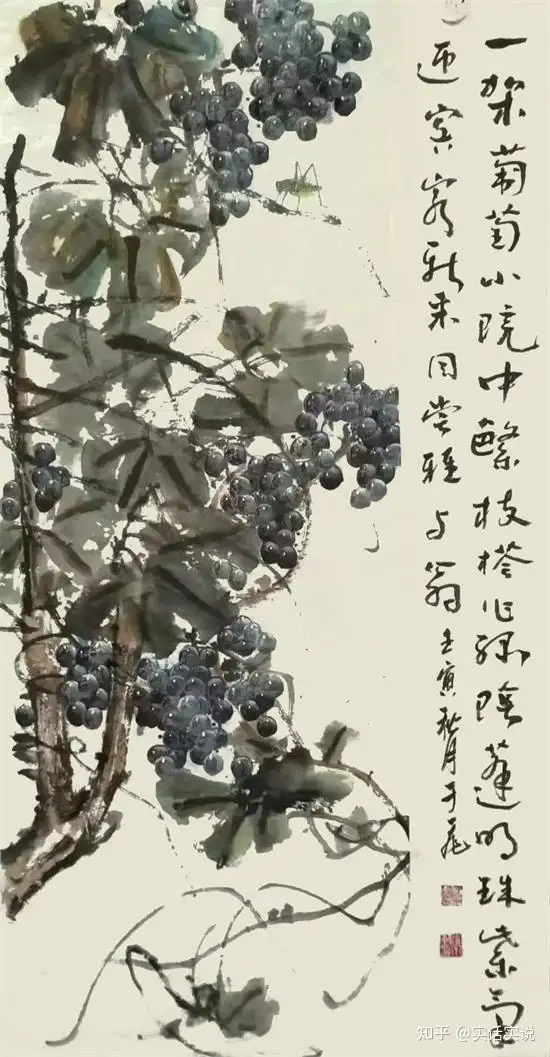 一架葡萄小院中繁枝搭作绿阴蓬明珠紫气
迎宾客秋来同尝雅与翁 壬寅秋月于
知乎 @实话实说